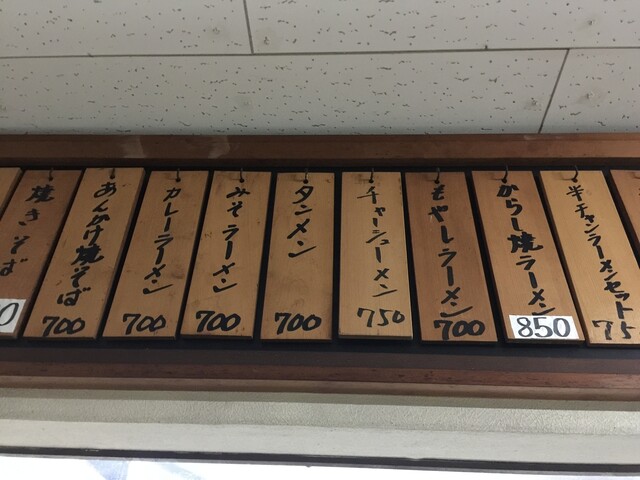 焼きそば
0
あんかけ焼そば
700
カレーラーメン
700
みそラーメン
700
タンメン
700
チャーシューメン
750
もやしラーメン
700
からし焼ラーメン
850
半チャンラーメンセット
75